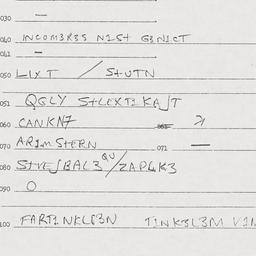 030 —
040 INCOM3R3S N1St G3N1CT
041 —
050 LIXT / StUTN
051 QGLY StLEXTIKAJT
060 CANKN7
070 AR1M STERN 071 —
080 StVEJBAL3 QU/ZAP4K3
090 O
100 FART1NKLG3N T1NK3L3M V1N